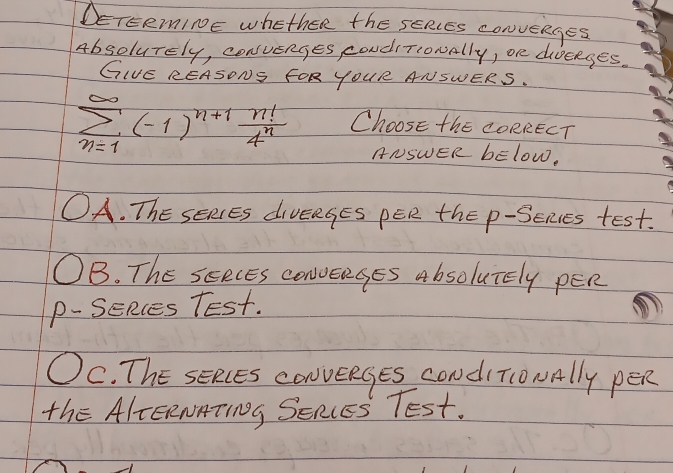 DETERMINE whether the SERIES CONVERGES
Absolutely, CONVERGES CONDITIONAlly, OR dIVERGES.
GIVE REASONS FOR YOUR ANSWERS.
∞
Σ (-1)ⁿ⁺¹ n!/4ⁿ Choose the CORRECT
n=1 ANSWER bElow.
O A. The SERIES dIVERGES PER the p-SERIES tEst.
O B. The SERIES CONVERGES AbsolutEly PER
p-SERIES Test.
O C. The SERIES CONVERGES CONdITIONAlly PER
the AlTERNATING SERIES TEST.